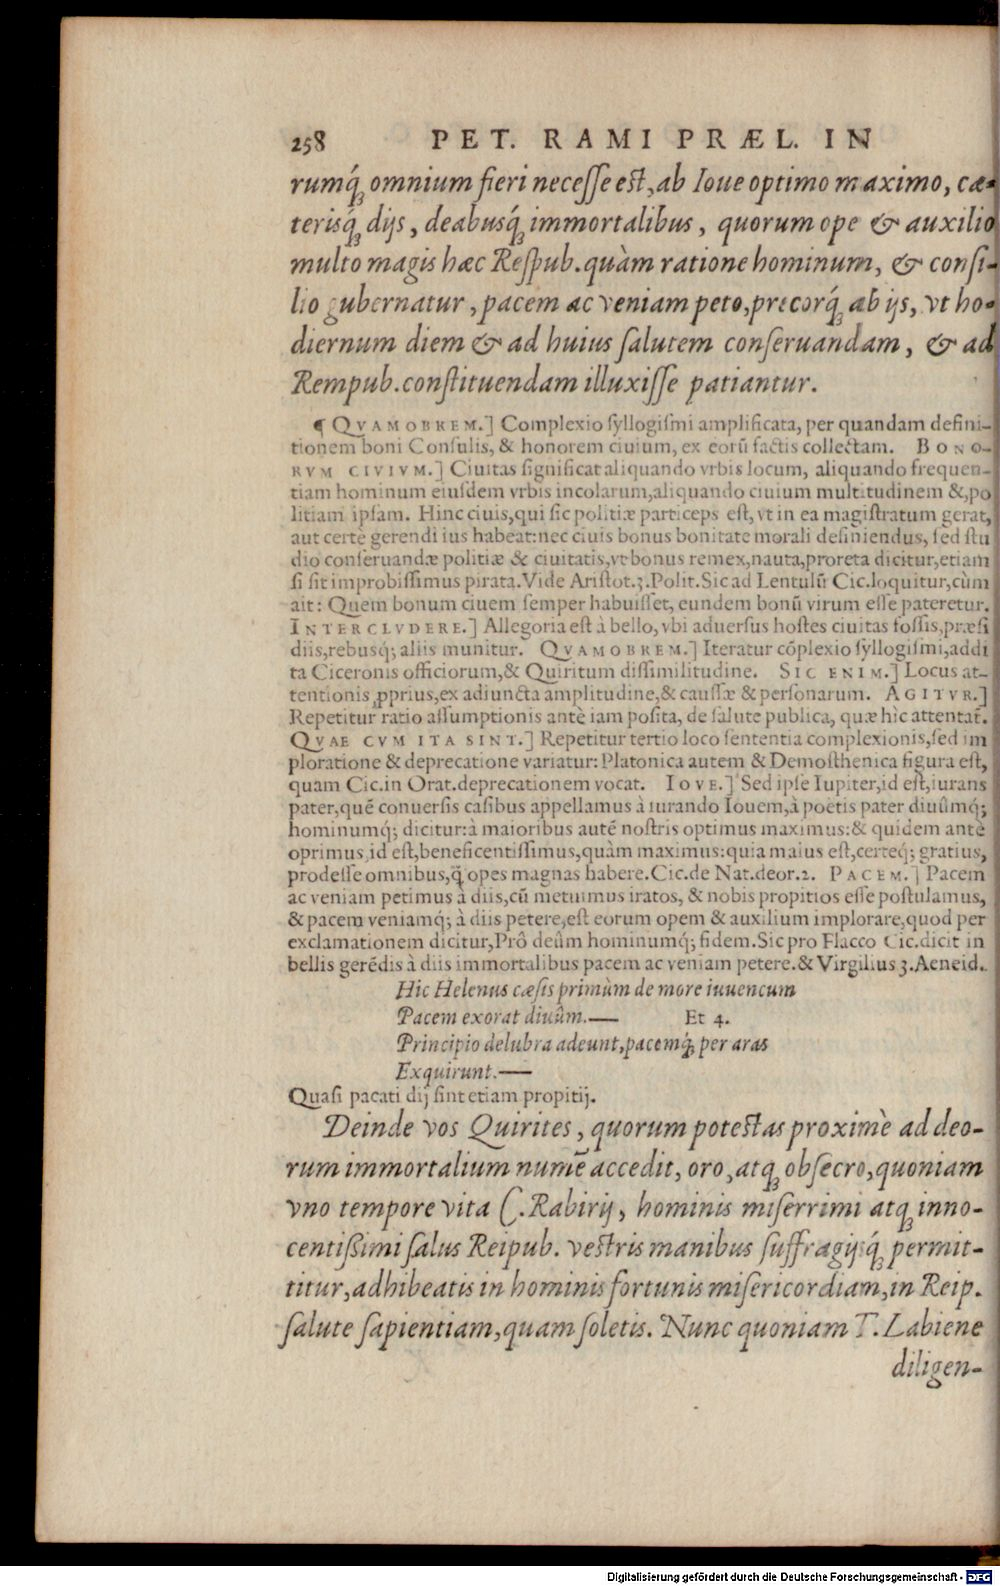 258 PET. RAMI PRÆL. IN
rumq́ꝫ omnium fieri neceſſe est, ab Ioue optimo maximo, cæ-
terisq́ꝫ dijs, deabusq́ꝫ immortalibus, quorum ope & auxilio
multo magis hæc Reſpub. quàm ratione hominum, & conſi-
lio gubernatur, pacem ac veniam peto, precorq́ꝫ ab ijs, vt ho-
diernum diem & ad huius ſalutem conſeruandam, & ad
Rempub. conſtituendam illuxiſſe patiantur.
¶ QVAMOBREM.] Complexio ſyllogiſmi amplificata, per quandam defini-
tionem boni Conſulis, & honorem ciuium, ex eorū factis collectam. BONO-
RVM CIVIVM.] Ciuitas ſignificat aliquando vrbis locum, aliquando frequen-
tiam hominum eiuſdem vrbis incolarum, aliquando ciuium multitudinem &, po
litiam ipſam. Hinc ciuis, qui ſic politiæ particeps eſt, vt in ea magiſtratum gerat,
aut certè gerendi ius habeat: nec ciuis bonus bonitate morali definiendus, ſed ſtu
dio conſeruandæ politiæ & ciuitatis, vt bonus remex, nauta, proreta dicitur, etiam
ſi ſit improbiſſimus pirata. Vide Ariſtot. 3. Polit. Sic ad Lentulū Cic. loquitur, cùm
ait: Quem bonum ciuem ſemper habuiſſet, eundem bonū virum eſſe pateretur.
INTERCLVDERE.] Allegoria eſt à bello, vbi aduerſus hoſtes ciuitas foſſis, præſi
diis, rebusq́ꝫ aliis munitur. QVAMOBREM.] Iteratur cōplexio ſyllogiſmi, addi
ta Ciceronis officiorum, & Quiritum diſſimilitudine. SIC ENIM.] Locus at-
tentionis ꝓprius, ex adiuncta amplitudine, & cauſſæ & perſonarum. AGITVR.]
Repetitur ratio aſſumptionis antè iam poſita, de ſalute publica, quæ hîc attentat᷑.
QVAE CVM ITA SINT.] Repetitur tertio loco ſententia complexionis, ſed im
ploratione & deprecatione variatur: Platonica autem & Demoſthenica figura eſt,
quam Cic. in Orat. deprecationem vocat. IOVE.] Sed ipſe Iupiter, id eſt, iurans
pater, quē conuerſis caſibus appellamus à iurando Iouem, à poëtis pater diuûmq́ꝫ
hominumq́ꝫ dicitur: à maioribus autē noſtris optimus maximus: & quidem antè
oprimus, id eſt, beneficentiſſimus, quàm maximus: quia maius eſt, certeq́ꝫ gratius,
prodeſſe omnibus, q̄̀ opes magnas habere. Cic. de Nat. deor. 2. PACEM.] Pacem
ac veniam petimus à diis, cū metuimus iratos, & nobis propitios eſſe poſtulamus,
& pacem veniamq́ꝫ à diis petere, eſt eorum opem & auxilium implorare, quod per
exclamationem dicitur, Prô deûm hominumq́ꝫ fidem. Sic pro Flacco Cic. dicit in
bellis gerēdis à diis immortalibus pacem ac veniam petere. & Virgilius 3. Aeneid.
Hic Helenus cæsis primùm de more iuuencum
Pacem exorat diuûm.— Et 4.
Principio delubra adeunt, pacemq́ꝫ per aras
Exquirunt.—
Quaſi pacati dij ſint etiam propitij.
Deinde vos Quirites, quorum potestas proximè ad deo-
rum immortalium numē accedit, oro, atqꝫ obſecro, quoniam
vno tempore vita C. Rabirij, hominis miſerrimi atqꝫ inno-
centißimi ſalus Reipub. vestris manibus ſuffragijsq́ꝫ permit-
titur, adhibeatis in hominis fortunis miſericordiam, in Reip.
ſalute ſapientiam, quam ſoletis. Nunc quoniam T. Labiene
diligen-
Digitalisierung gefördert durch die Deutsche Forschungsgemeinschaft - DFG